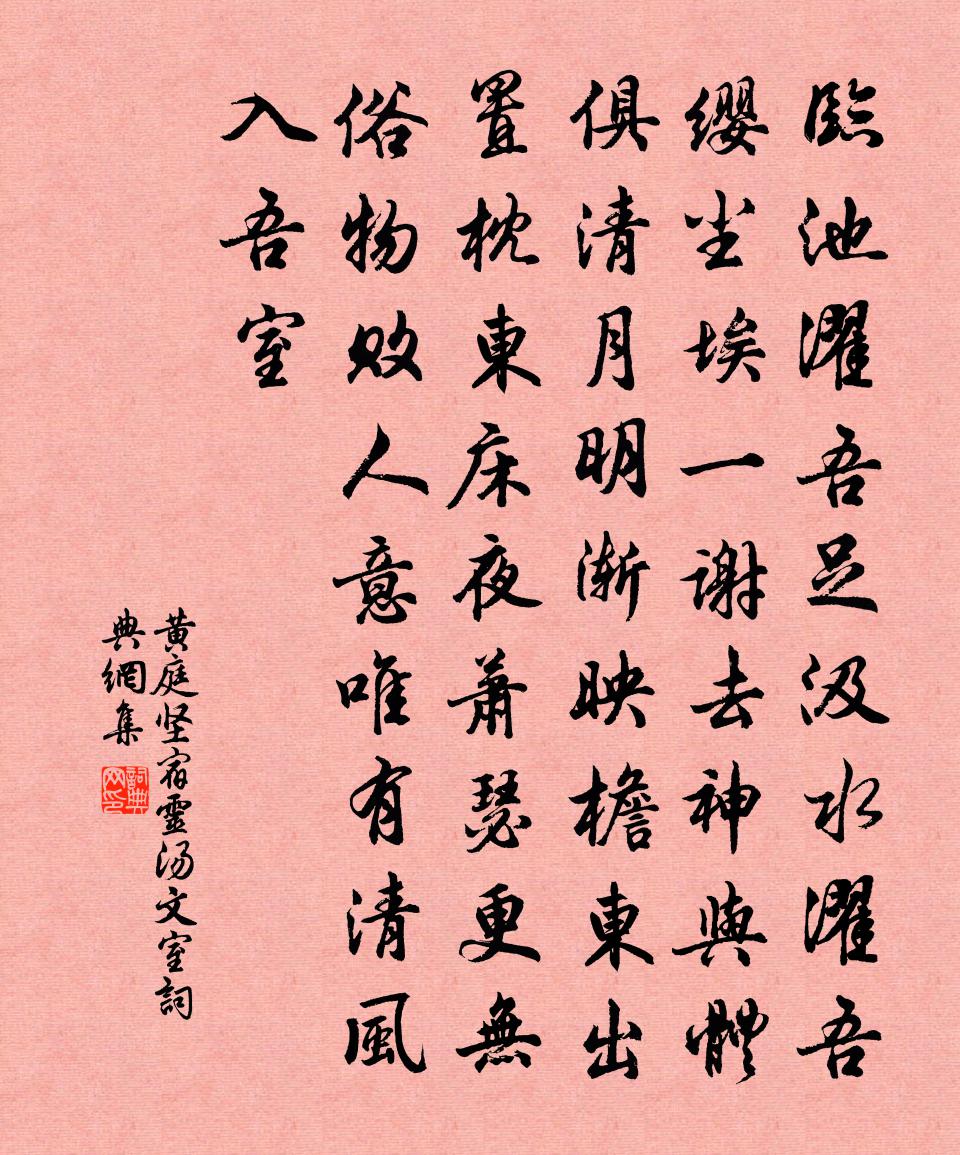 臨池濯吾足汲水濯吾
纓尘埃一谢去神與體
俱清月明渐映檐東出
置枕東床夜萧瑟更無
俗物败人意唯有清風
入吾室
黄庭坚宿靈汤文室詞
典網集
詞典
网印